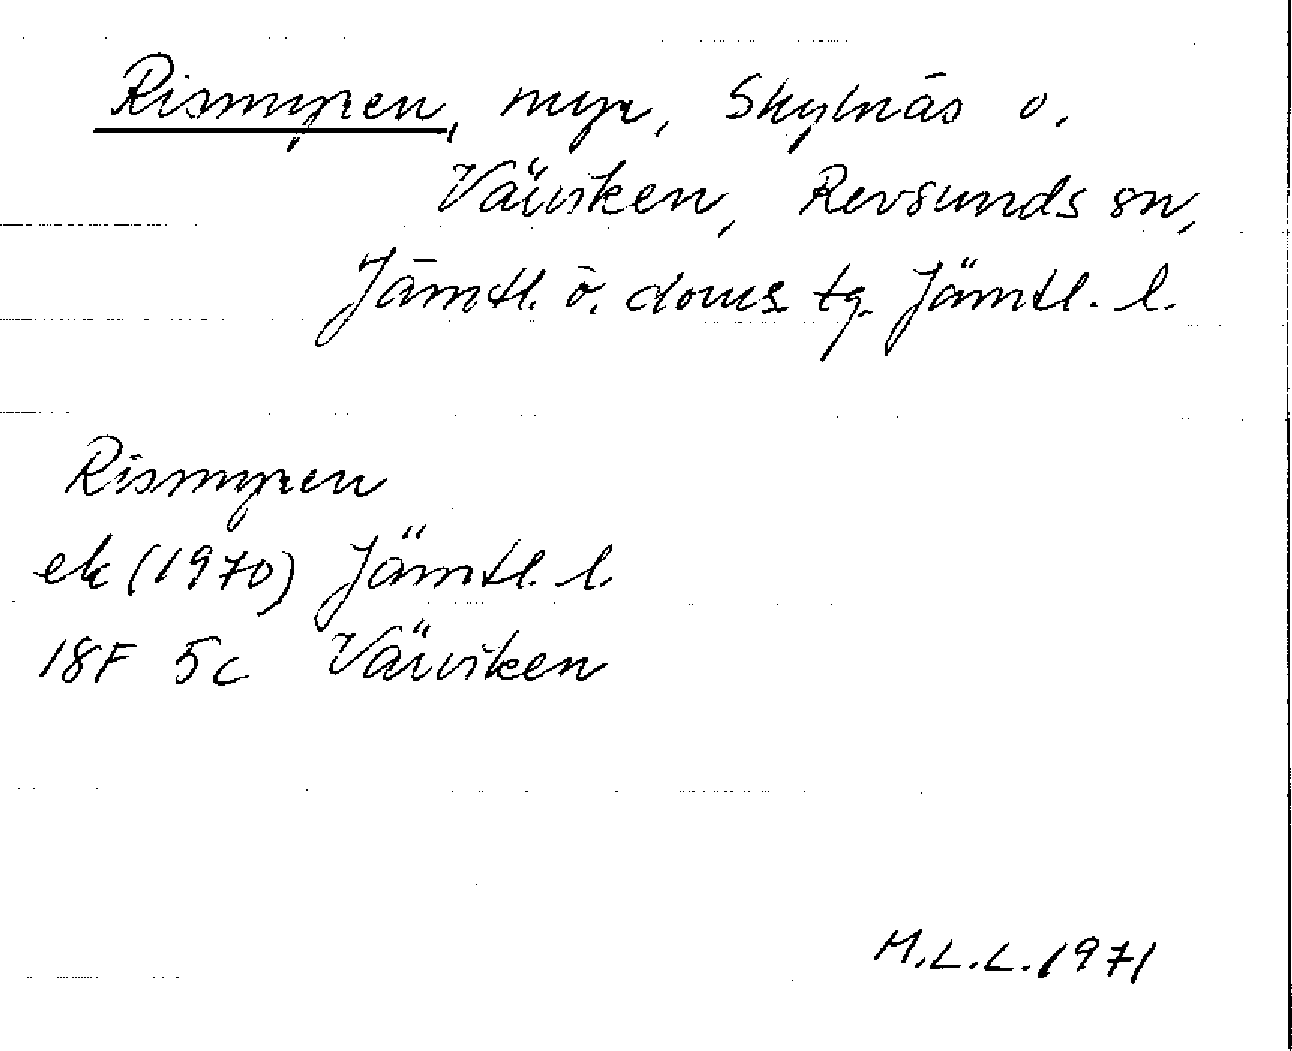 Rismyren, myr, Skylnäs o.
Värviken, Revsunds sn,
Jämtl. ö. doms tg. Jämtl. l.
Rismyren
ek (1970) Jämtl. l.
18F 5c Värviken
M.L.L. 1971